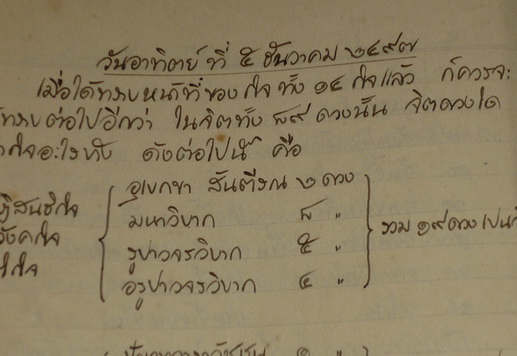 วันอาทิตย์ ที่ ๕ ธันวาคม ๒๔๙๗
เมื่อได้ทราบหน้าที่ของกิจ ทั้ง ๑๔ กิจแล้ว ก็ควรจะ
ทราบต่อไปอีกว่า ในจิตทั้ง ๘๙ ดวงนั้น จิตดวงใด
ทำกิจอะไรบ้าง ดังต่อไปนี้ คือ
ปฏิสนธิกิจ อุเบกขา สันตีรณ ๒ ดวง
ภวังคกิจ มหาวิบาก ๘ " รวม ๑๙ ดวง
จุติกิจ รูปาวจรวิบาก ๕ "
อรูปาวจรวิบาก ๔ "